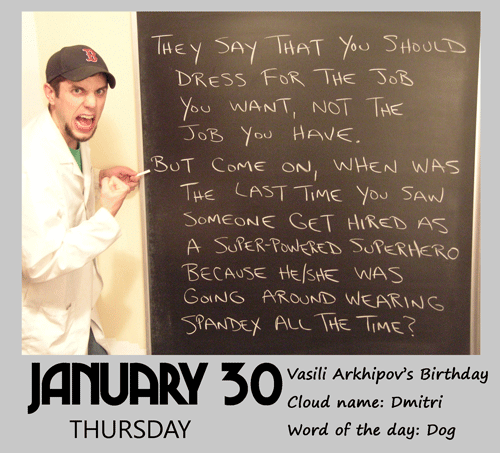 B
THEY SAY THAT YOU SHOULD
DRESS FOR THE JOB
YOU WANT, NOT THE
JOB YOU HAVE.
BUT COME ON, WHEN WAS
THE LAST TIME YOU SAW
SOMEONE GET HIRED AS
A SUPER-POWERED SUPERHERO
BECAUSE HE/SHE WAS
GOING AROUND WEARING
SPANDEX ALL THE TIME?
JANUARY 30
THURSDAY
Vasili Arkhipov's Birthday
Cloud name: Dmitri
Word of the day: Dog